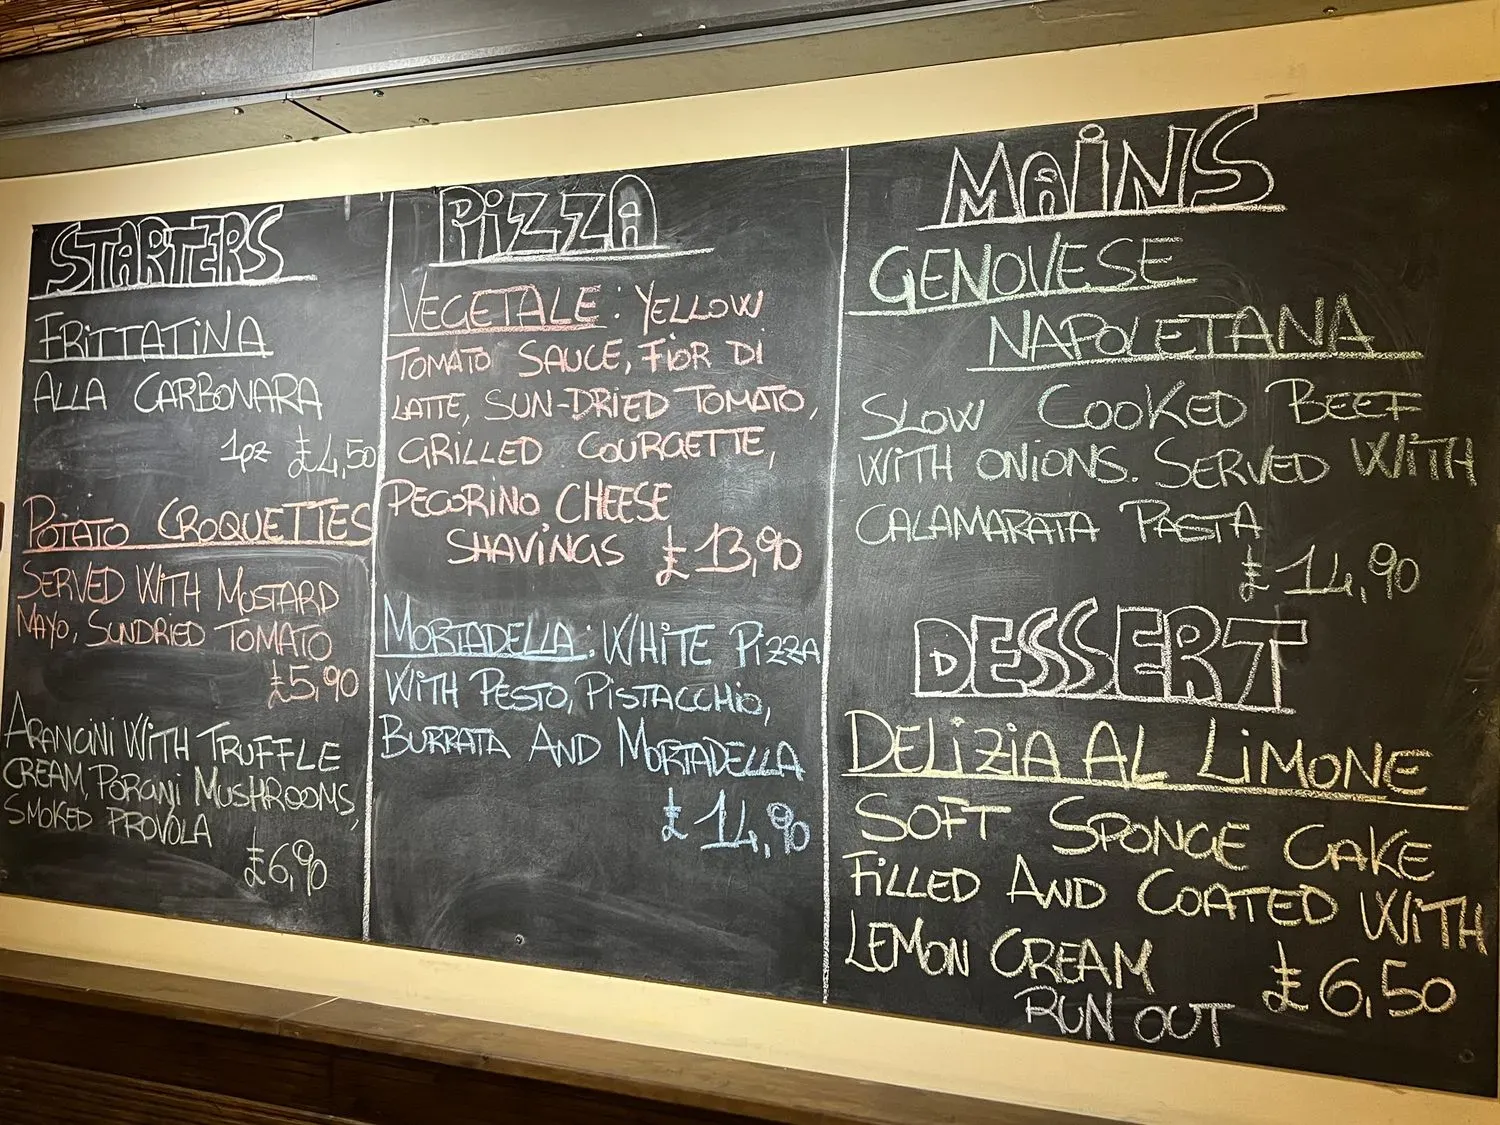 STARTERS
FRITTATINA
ALLA CARBONARA
1pz £4,50
POTATO CROQUETTES
SERVED WITH MUSTARD
MAYO, SUNDRIED TOMATO
£5,90
ARANCINI WITH TRUFFLE
CREAM, PORCINI MUSHROOMS,
SMOKED PROVOLA
£6,90
PIZZA
VEGETALE: YELLOW
TOMATO SAUCE, FIOR DI
LATTE, SUN-DRIED TOMATO,
GRILLED COURGETTE,
PECORINO CHEESE
SHAVINGS £13,90
MORTADELLA: WHITE PIZZA
WITH PESTO, PISTACCHIO,
BURRATA AND MORTADELLA
£14,90
MAINS
GENOVESE
NAPOLETANA
SLOW COOKED BEEF
WITH ONIONS. SERVED WITH
CALAMARATA PASTA
£14,90
DESSERT
DELIZIA AL LIMONE
SOFT SPONGE CAKE
FILLED AND COATED WITH
LEMON CREAM £6,50
RUN OUT